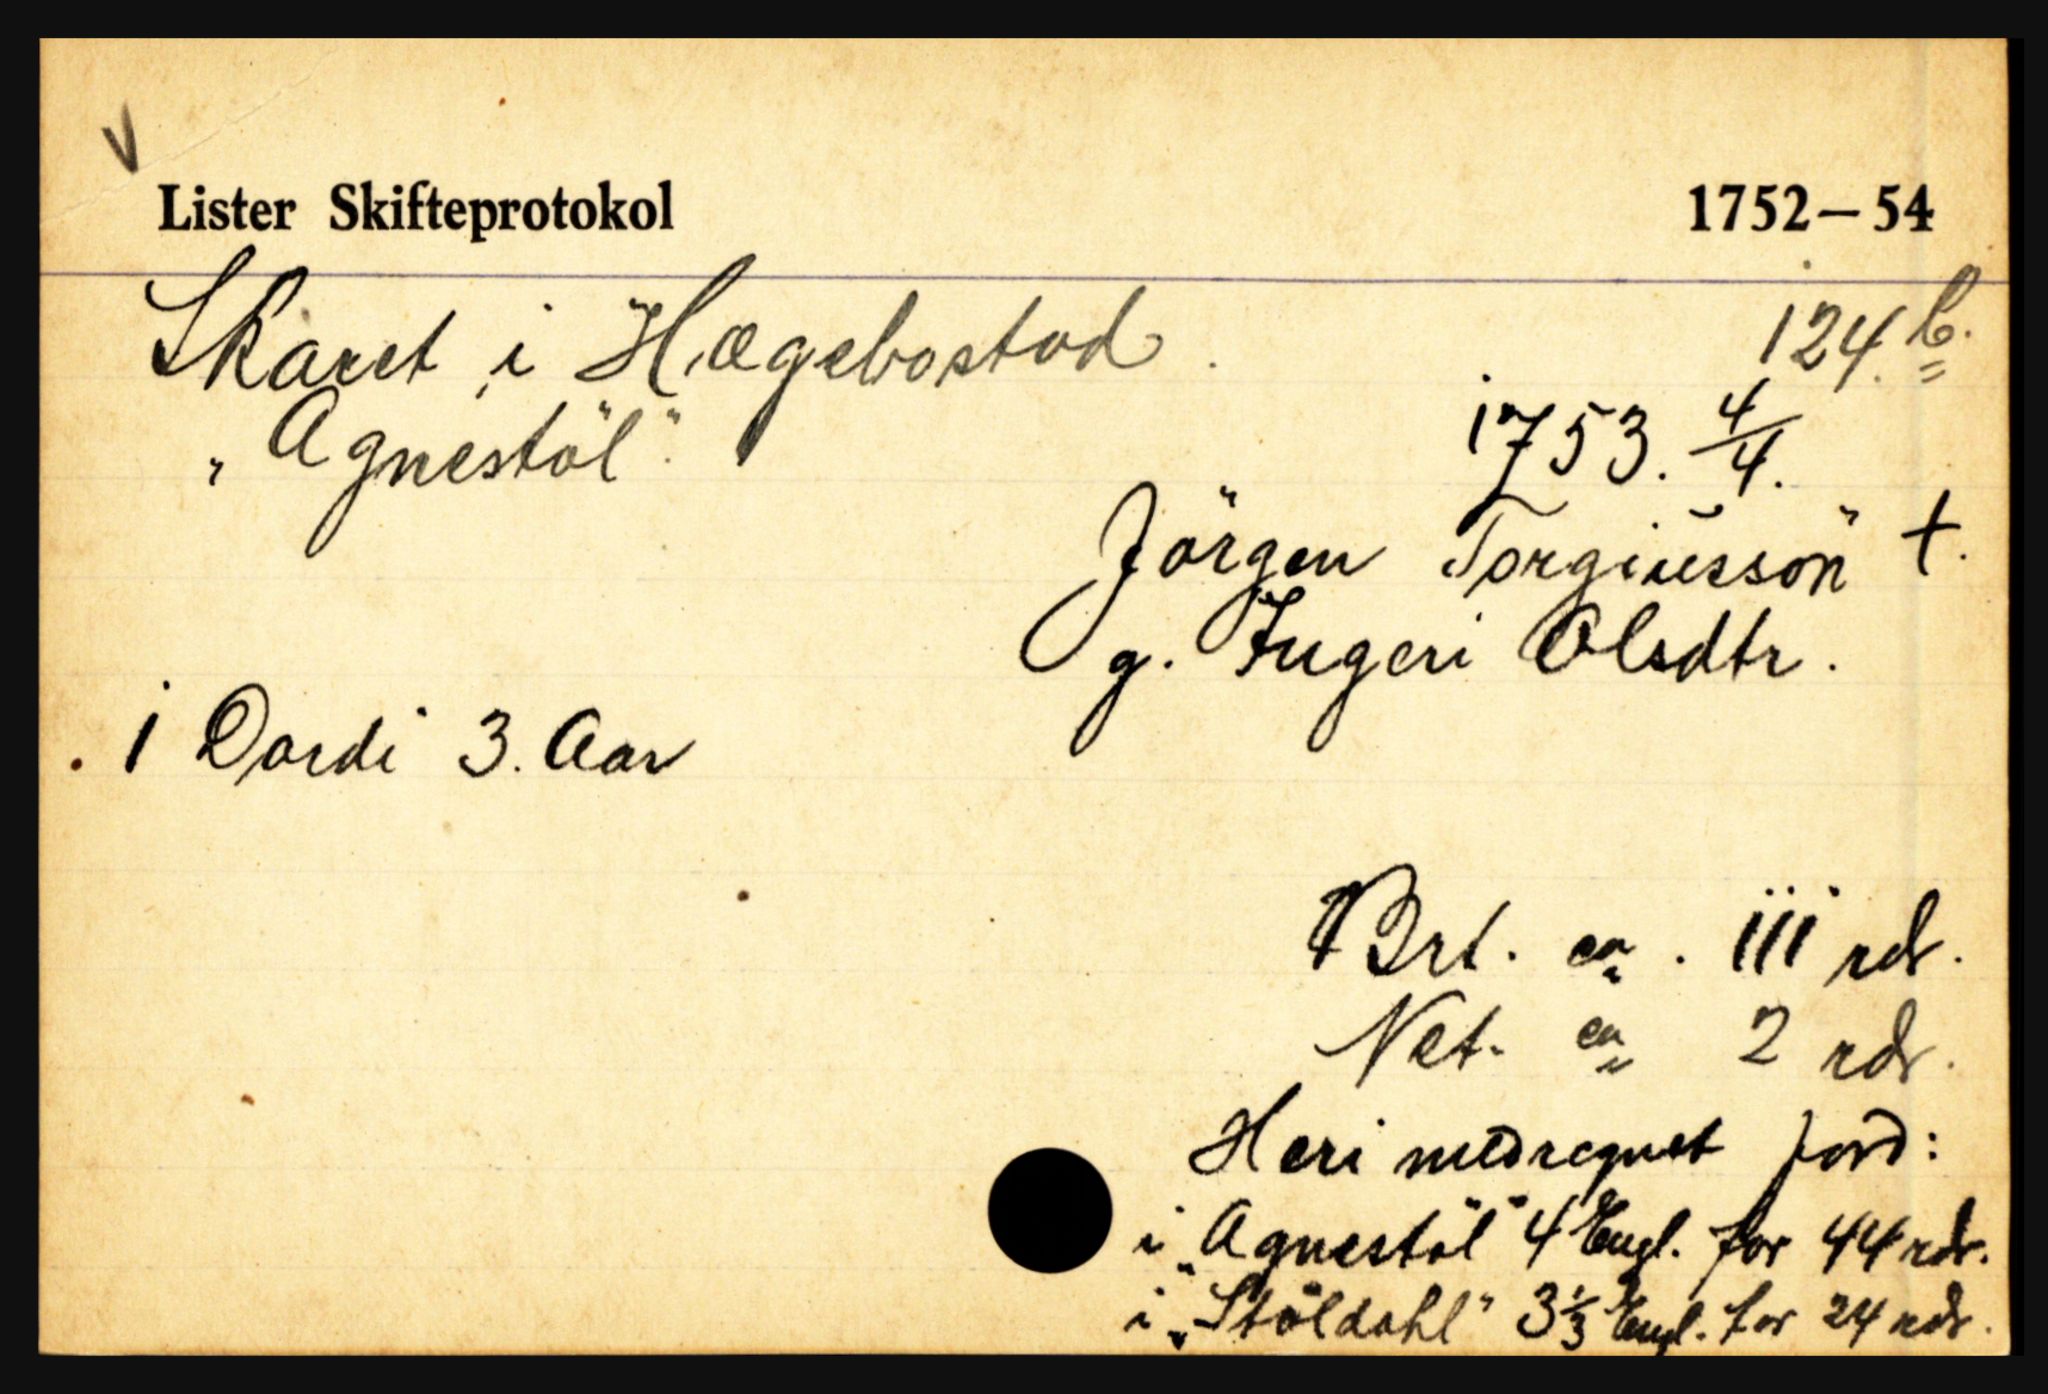 V
Lister Skifteprotokol 1752—54
Skaret i Hægebostad. 124.b.
"Agnestöl". 1753. 4/4.
Jörgen Torgiŭssön †.
g. Ingeri Olsdtr.
1 Dordi 3. Aar
Brt. ca. 111 rdr.
Net. ca 2 rdr.
Heri medregnet jord:
i "Agnestöl" 4 Engl. for 44 rdr.
i "Stöldahl" 3 1/3 Engl. for 24 rdr.